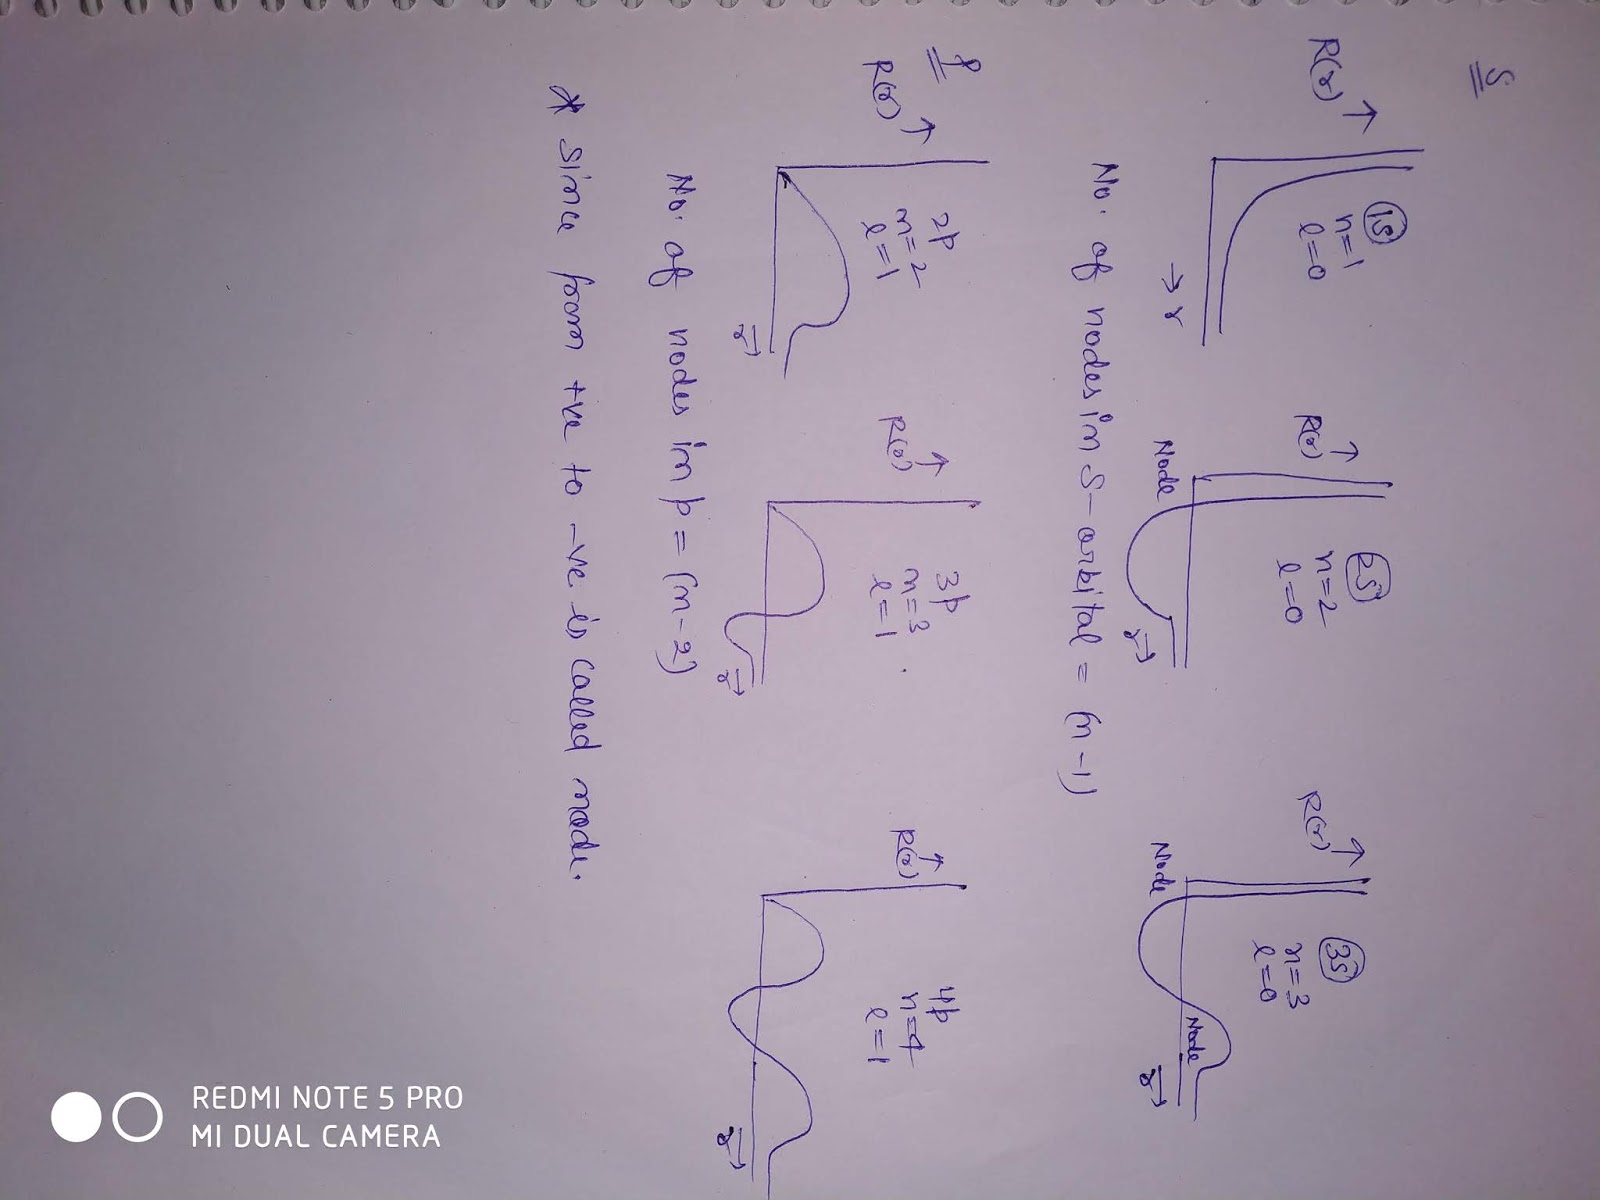 S
R(r) ↑
1s
n=1
l=0
→ r
R(r) ↑
2s
n=2
l=0
Node
r→
R(r) ↑
3s
n=3
l=0
Node
Node
r→
No. of nodes in S-orbital = (n-1)
P
R(r) ↑
2p
n=2
l=1
r→
R(r) ↑
3p
n=3
l=1
r→
R(r) ↑
4p
n=4
l=1
r→
No. of nodes in p = (n-2)
* Since from +ve to -ve is called node.
REDMI NOTE 5 PRO
MI DUAL CAMERA